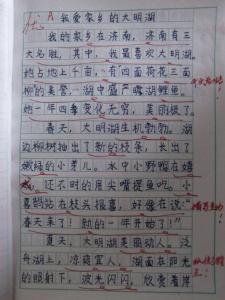 优 A 我爱家乡的大明湖
我的家乡在济南，济南有三
大名胜，其中，我最喜欢大明湖。
她占地上千亩，有四面荷花三面
柳的美誉，湖中盛产露湖鲤鱼。
她一年四季变化无穷，美丽极了。
春天，大明湖生机勃勃。湖
边柳树抽出了新的枝条，长出了
嫩绿的小芽儿。水中小野鸭在嬉
戏，还不时的用尖嘴捉鱼吃。小
喜鹊站在枝头报喜，好像在说："
春天来了！新的一年开始了！"
夏天，大明湖美丽动人。泛
舟湖上，凉爽宜人。湖面在阳光
的照射下，波光闪闪。欣赏着岸